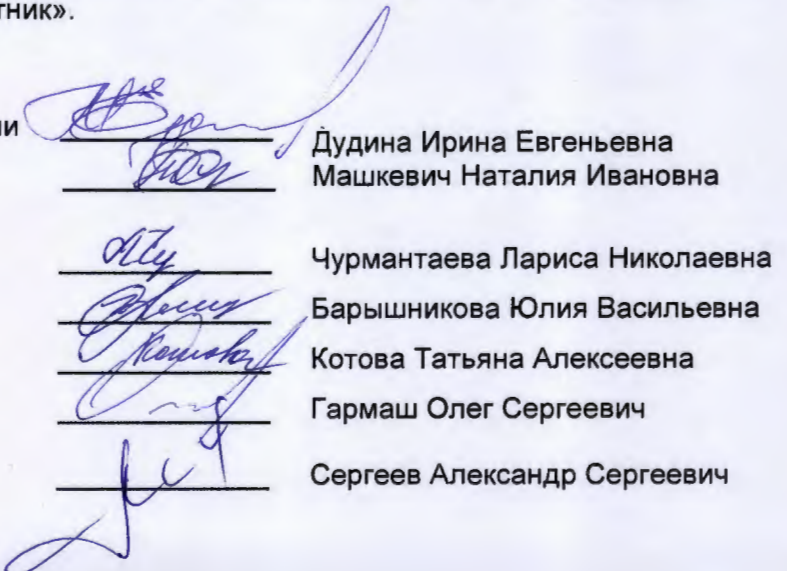 тник».
ии Дудина Ирина Евгеньевна
Машкевич Наталия Ивановна
Чурмантаева Лариса Николаевна
Барышникова Юлия Васильевна
Котова Татьяна Алексеевна
Гармаш Олег Сергеевич
Сергеев Александр Сергеевич